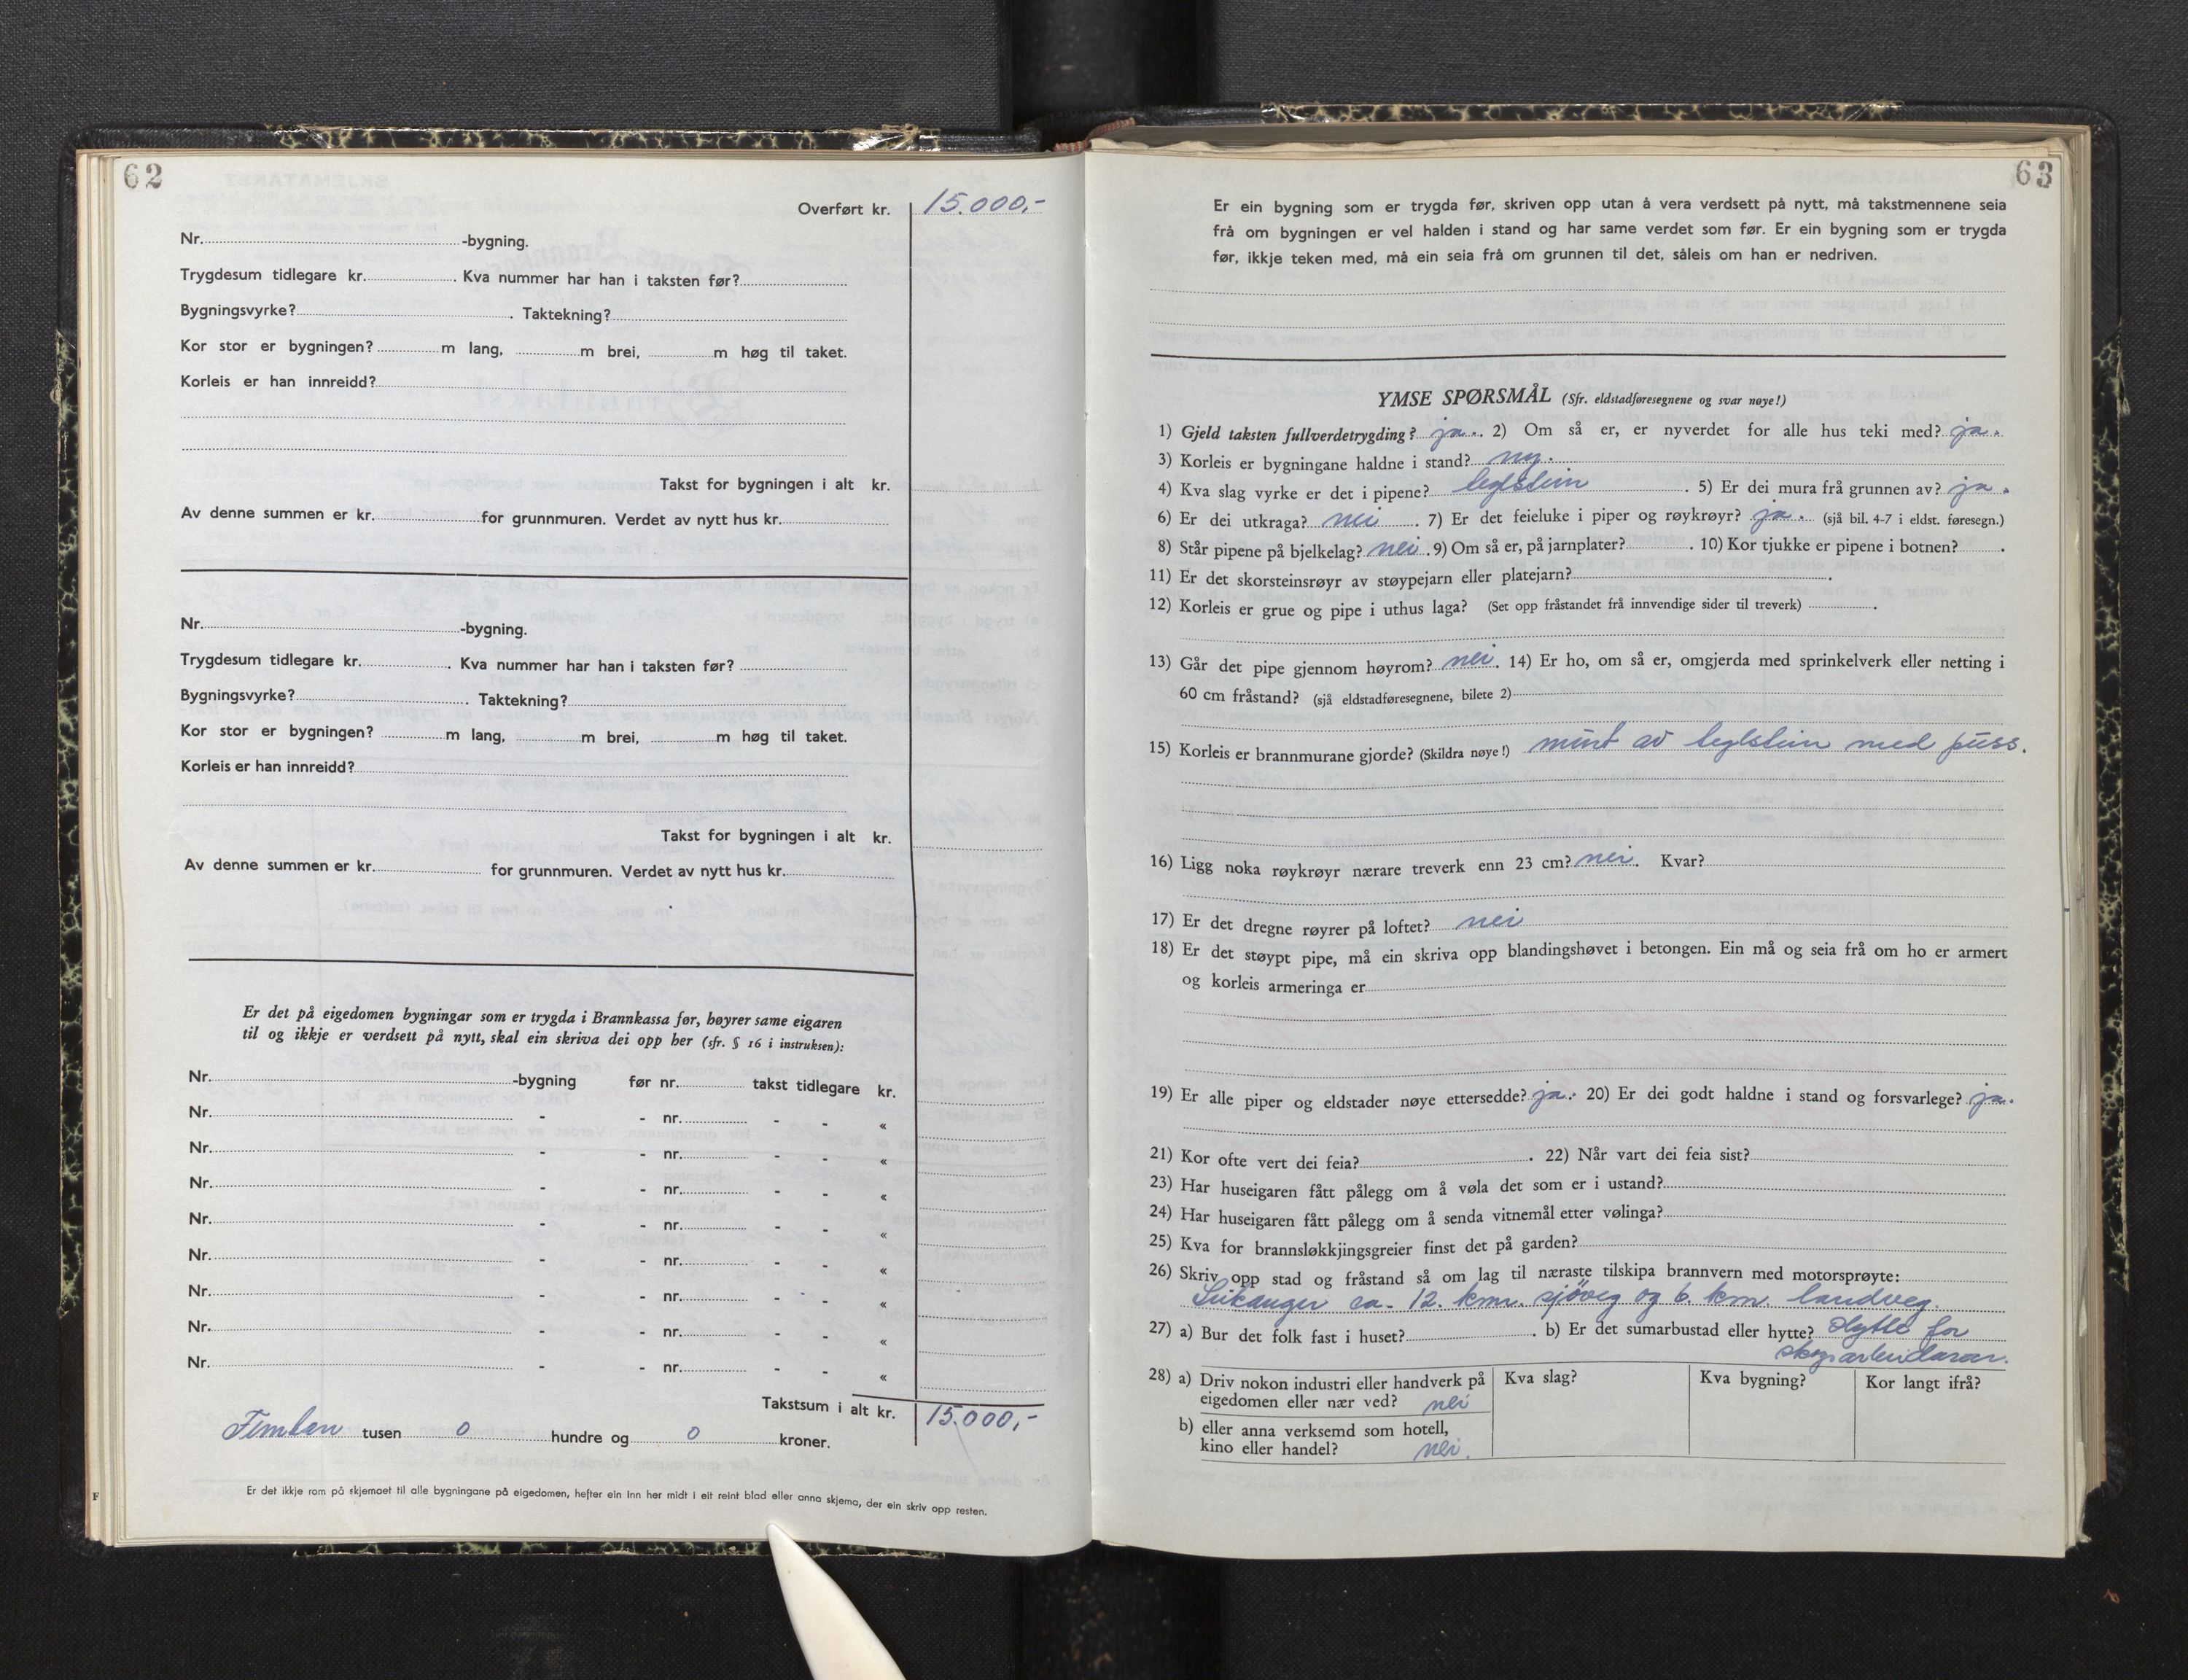 62
Overført kr. 15.000,-
Nr. -bygning.
Trygdesum tidlegare kr. . Kva nummer har han i taksten før?
Bygningsvyrke? . Taktekning?
Kor stor er bygningen? m lang, m brei, m høg til taket.
Korleis er han innreidd?
Takst for bygningen i alt kr.
Av denne summen er kr. for grunnmuren. Verdet av nytt hus kr.
Nr. -bygning.
Trygdesum tidlegare kr. . Kva nummer har han i taksten før?
Bygningsvyrke? . Taktekning?
Kor stor er bygningen? m lang, m brei, m høg til taket.
Korleis er han innreidd?
Takst for bygningen i alt kr.
Av denne summen er kr. for grunnmuren. Verdet av nytt hus kr.
Er det på eigedomen bygningar som er trygda i Brannkassa før, høyrer same eigaren
til og ikkje er verdsett på nytt, skal ein skriva dei opp her (sfr. § 16 i instruksen):
Nr. -bygning før nr. takst tidlegare kr.
Nr. - - nr. - - «
Nr. - - nr. - - «
Nr. - - nr. - - «
Nr. - - nr. - - «
Nr. - - nr. - - «
Nr. - - nr. - - «
Nr. - - nr. - - «
Nr. - - nr. - - «
Takstsum i alt kr. 15.000,-
Femtan tusen 0 hundre og 0 kroner.
Er det ikkje rom på skjemaet til alle bygningane på eigedomen, hefter ein inn her midt i eit reint blad eller anna skjema, der ein skriv opp resten.
F
63
Er ein bygning som er trygda før, skriven opp utan å vera verdsett på nytt, må takstmennene seia
frå om bygningen er vel halden i stand og har same verdet som før. Er ein bygning som er trygda
før, ikkje teken med, må ein seia frå om grunnen til det, såleis om han er nedriven.
YMSE SPØRSMÅL (Sfr. eldstadføresegnene og svar nøye!)
1) Gjeld taksten fullverdetrygding? ja. . 2) Om så er, er nyverdet for alle hus teki med? ja.
3) Korleis er bygningane haldne i stand? ny.
4) Kva slag vyrke er det i pipene? teglstein . 5) Er dei mura frå grunnen av? ja .
6) Er dei utkraga? nei . 7) Er det feieluke i piper og røykrøyr? ja. (sjå bil. 4-7 i eldst. føresegn.)
8) Står pipene på bjelkelag? nei . 9) Om så er, på jarnplater? . 10) Kor tjukke er pipene i botnen? .
11) Er det skorsteinsrøyr av støypejarn eller platejarn? .
12) Korleis er grue og pipe i uthus laga? (Set opp fråstandet frå innvendige sider til treverk) .
13) Går det pipe gjennom høyrom? nei. 14) Er ho, om så er, omgjerda med sprinkelverk eller netting i
60 cm fråstand? (sjå eldstadføresegnene, bilete 2)
15) Korleis er brannmurane gjorde? (Skildra nøye!) murt av teglstein med puss.
16) Ligg noka røykrøyr nærare treverk enn 23 cm? nei. Kvar?
17) Er det dregne røyrer på loftet? nei
18) Er det støypt pipe, må ein skriva opp blandingshøvet i betongen. Ein må og seia frå om ho er armert
og korleis armeringa er
19) Er alle piper og eldstader nøye ettersedde? ja. 20) Er dei godt haldne i stand og forsvarlege? ja.
21) Kor ofte vert dei feia? . 22) Når vart dei feia sist?
23) Har huseigaren fått pålegg om å vøla det som er i ustand?
24) Har huseigaren fått pålegg om å senda vitnemål etter vølinga?
25) Kva for brannsløkkjingsgreier finst det på garden?
26) Skriv opp stad og fråstand så om lag til næraste tilskipa brannvern med motorsprøyte:
Leikanger ca. 12. km. sjöveg og 6. km. landveg.
27) a) Bur det folk fast i huset? . b) Er det sumarbustad eller hytte? Hytte for
skogsarbeidarar.
28) a) Driv nokon industri eller handverk på eigedomen eller nær ved? nei Kva slag? Kva bygning? Kor langt ifrå?
b) eller anna verksemd som hotell,
kino eller handel? nei.